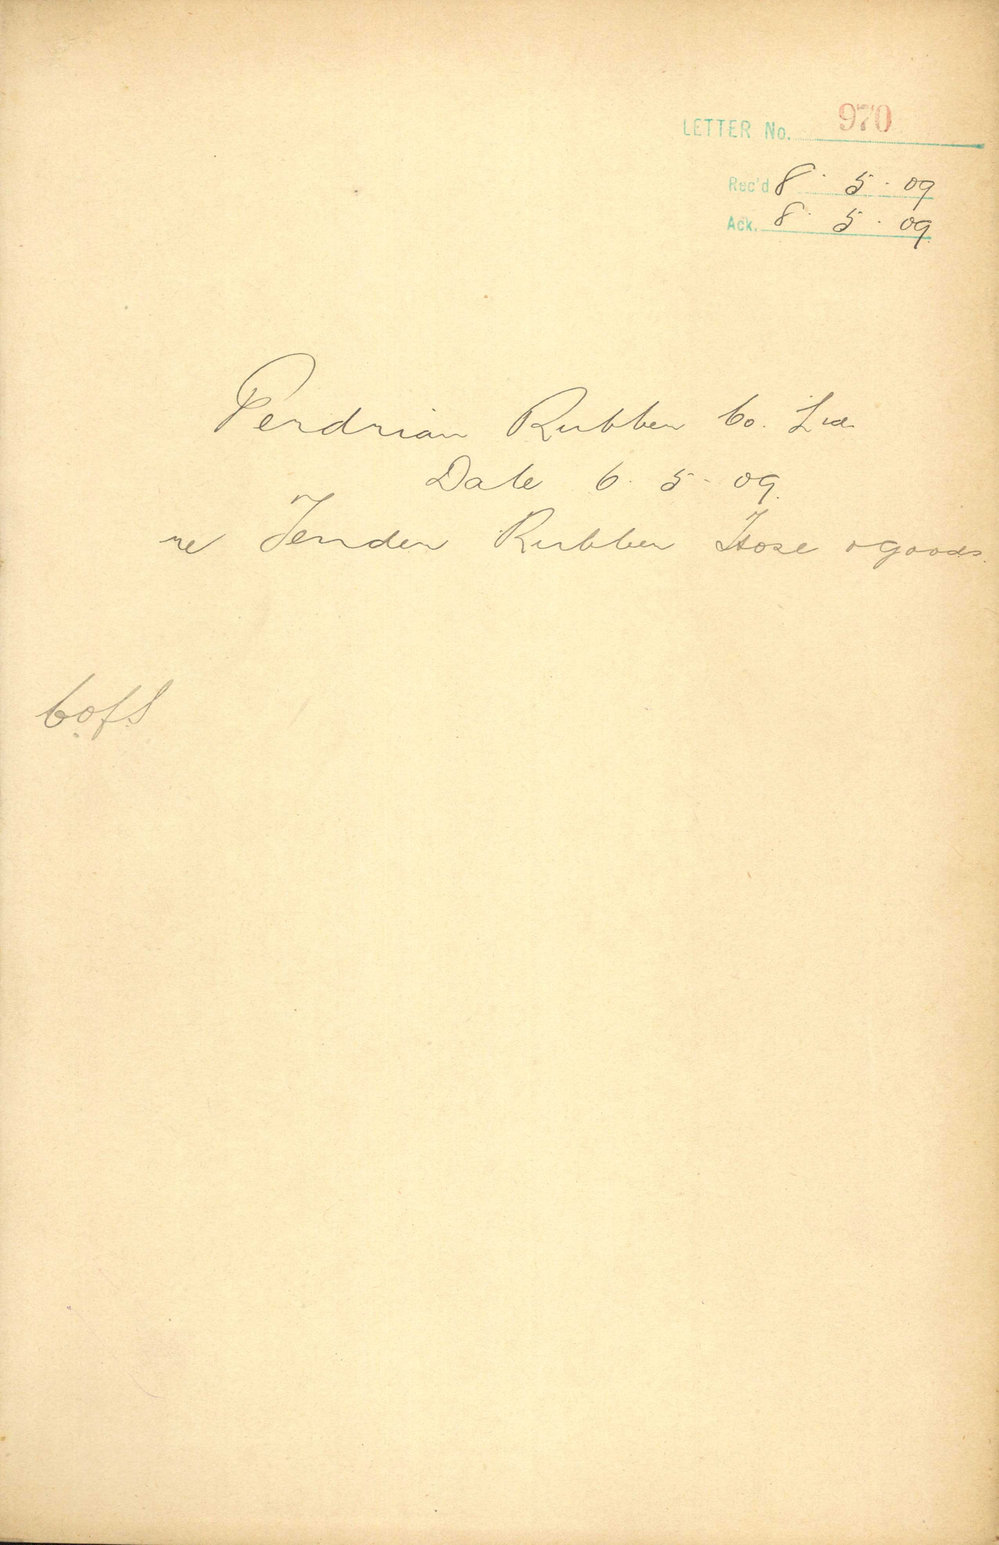 LETTER No. 970
Rec'd 8. 5. 09
Ack. 8. 5. 09
Perdriau Rubber Co. Ltd.
Date 6. 5. 09.
re Tender Rubber Hose & Goods.
C.of.S